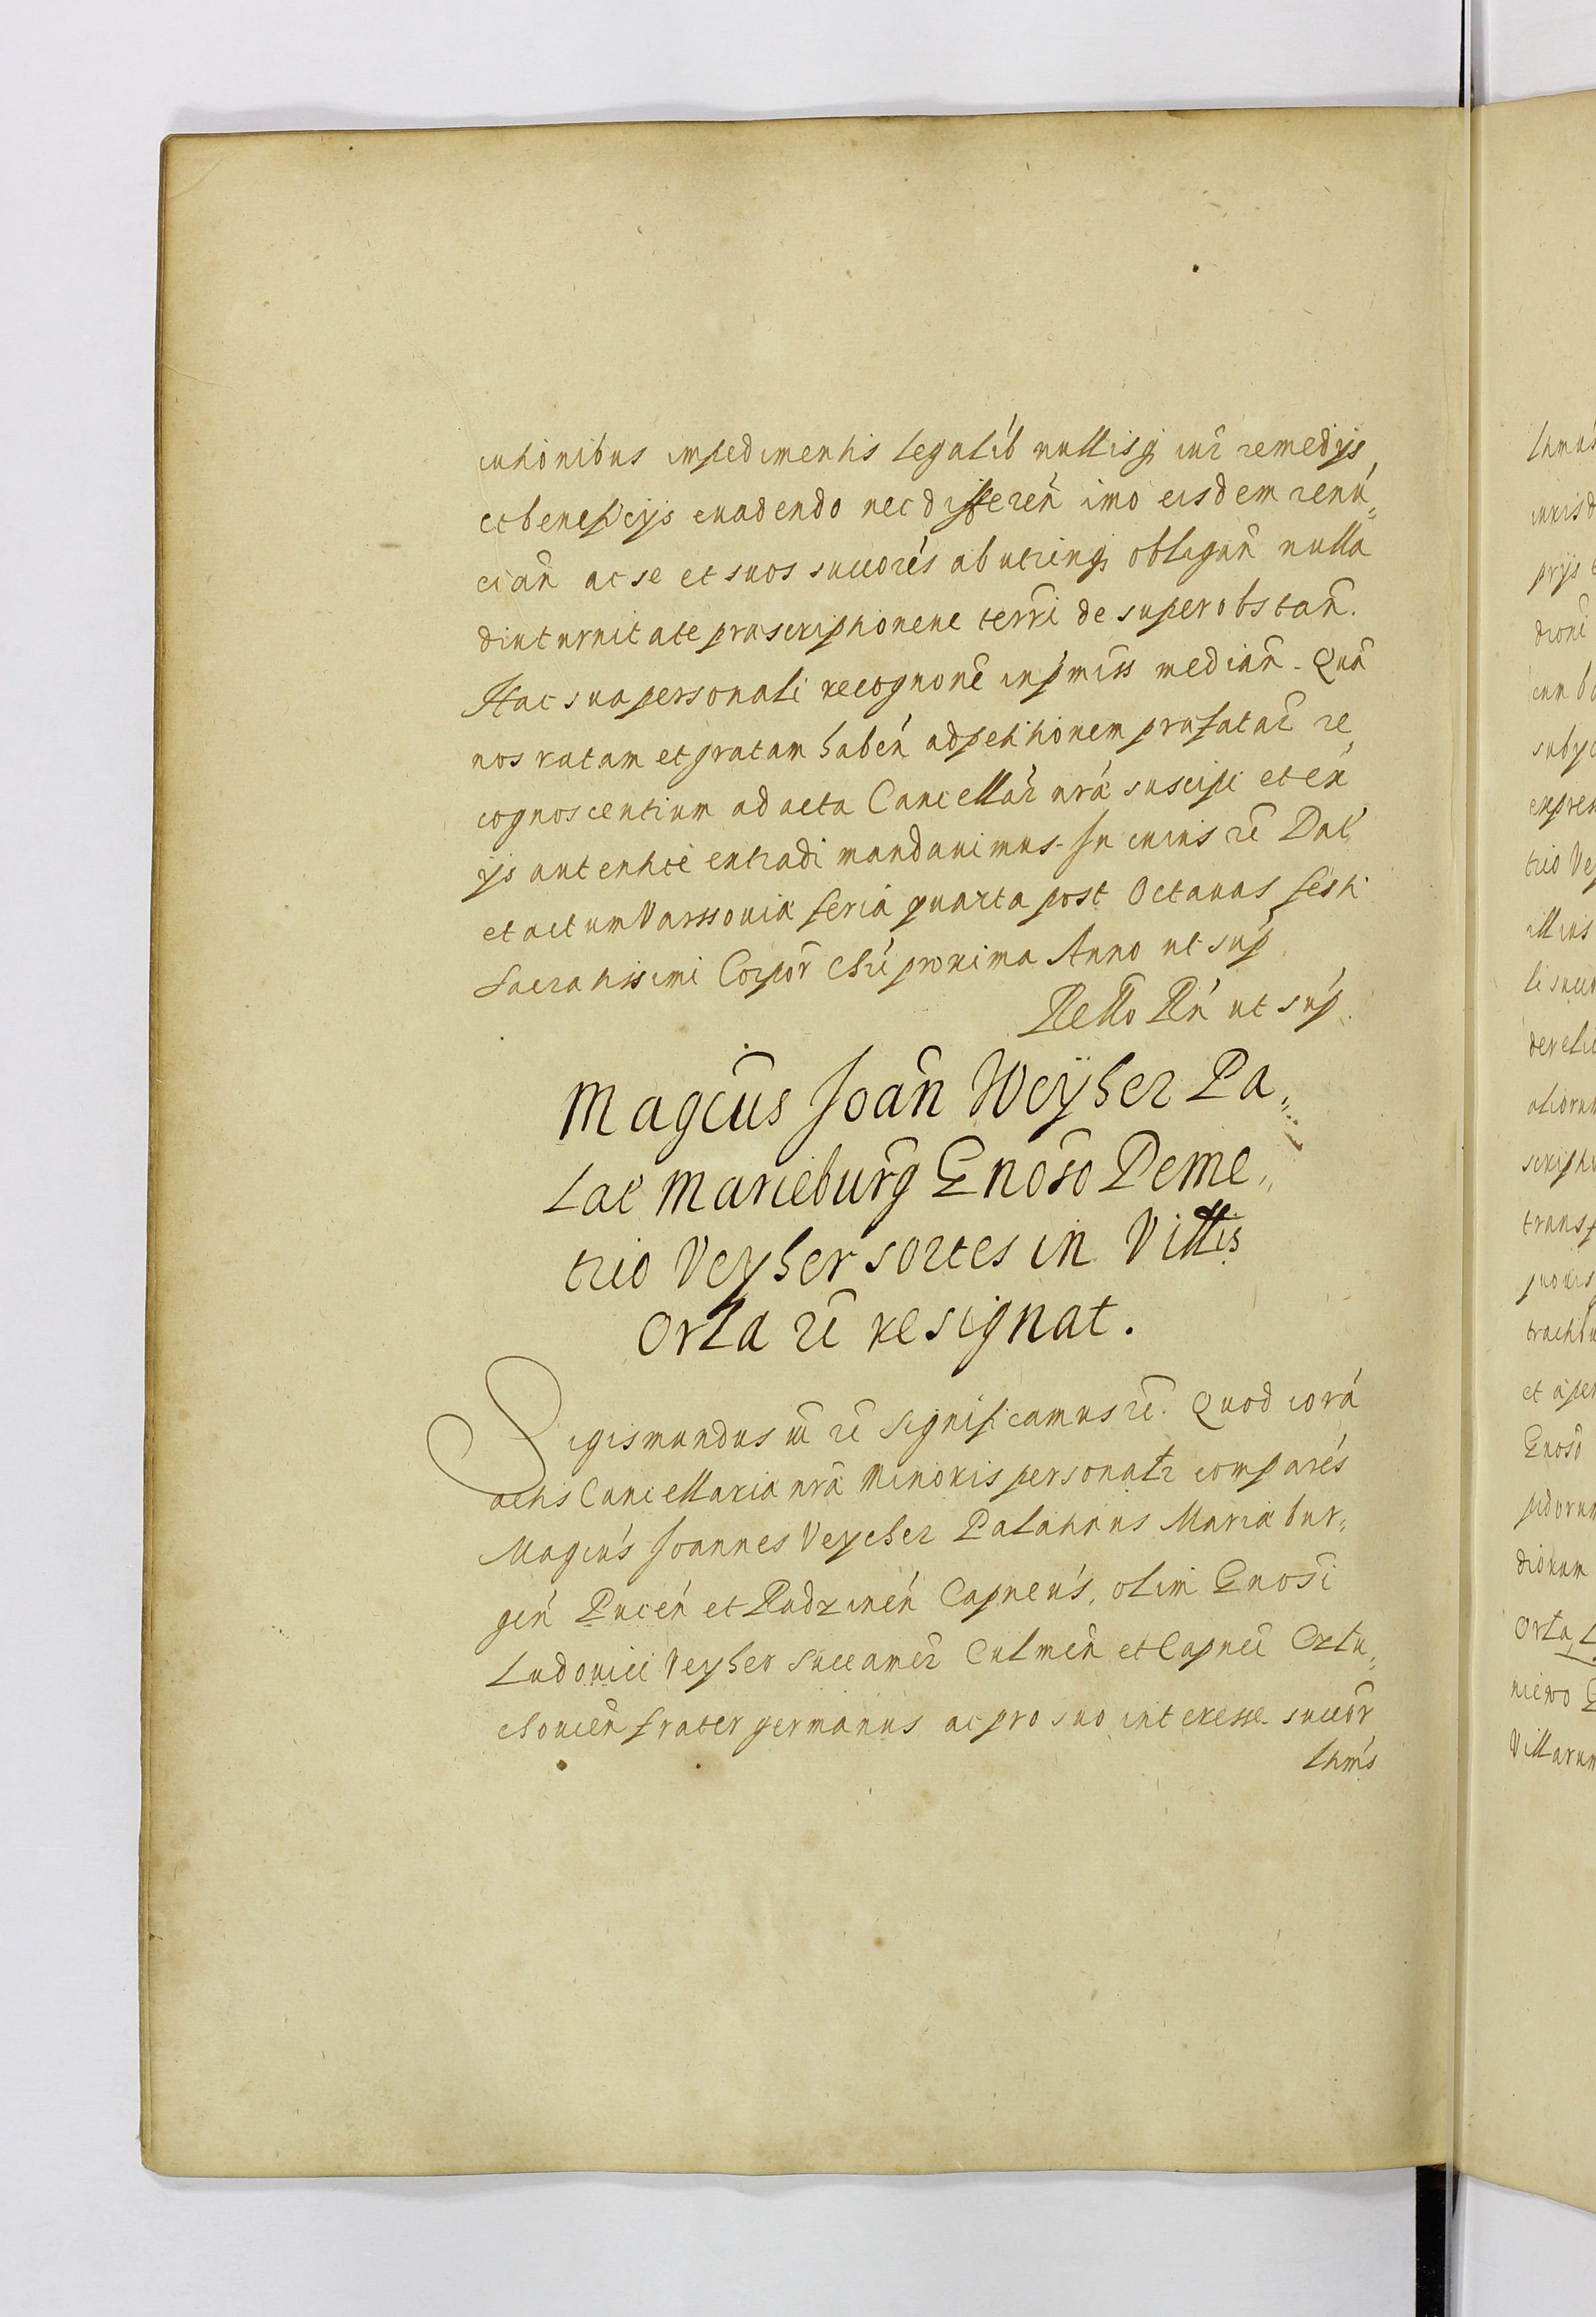 cutionibus impedimentis legalib nullisq iur remedijs
et beneficijs evadendo nec differen̄ imo eisdem renun„
cian̄ ac se et suos succorés ab utrinq obligan̄ nulla
diuturnitate praescriptioneue terri de super obstan̄.
Hac sua personali recognone in p̄miss median̄. Quā
nos ratam et gratam habén ad petitionem praefatar re„
cognoscentium ad acta Cancellar nrā suscipi et ex
ijs autenticé extradi mandauimus. In cuius rē Dat
et actum Varssouiæ feria quarta post Octauas festi
Sacratissimi Corpor Chri proxima Anno ut sup
Rello Rń ut sup.
Magcus Joan̄ Weÿher Pa„
lae Marieburg Gnoso Deme„
trio Veyher sortes in Villis
Orla rē resignat.
Sigismundus iii rē Significamus rē. Quod corā
actis Cancellariæ nrā Minoris personalr comparés
Magcus Joannes Veyeher Palatinus Mariæbur„
gen̄ Pucén et Radzinén Capneus, olim Gnosi
Ludouici Veyher Succamer Culmen̄ et Capnei Czlu„
chouien̄ frater germanus ac pro suo interesse succor
lhmś